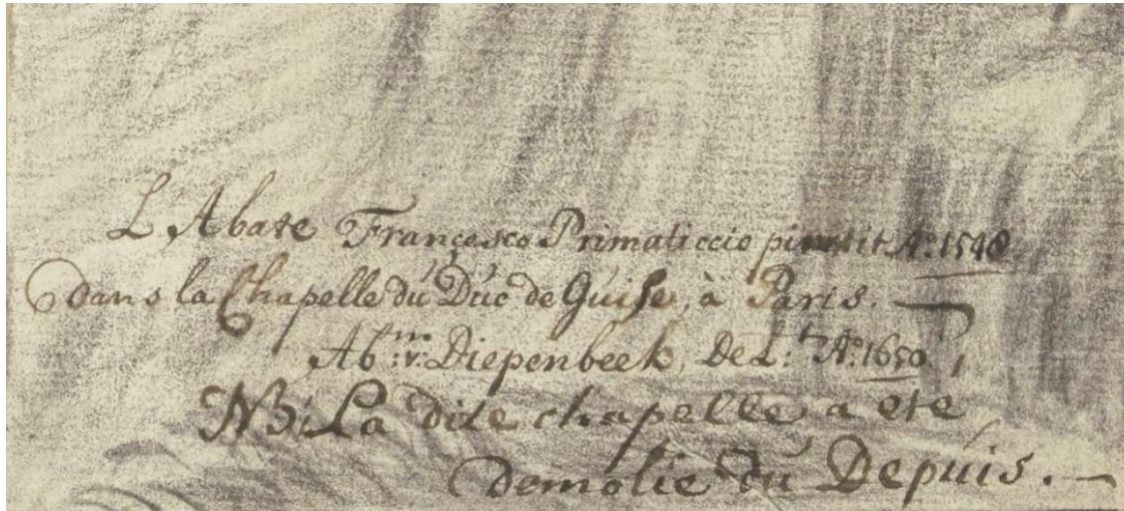 L'Abate Francesco Primaticcio pinxit A.o 1548
dans la Chapelle du Duc de Guise, à Paris.
Ab:m v: Diepenbeek, DeL:t A.o 1650
NB: La dite chapelle a eté
demolie du Depuis.